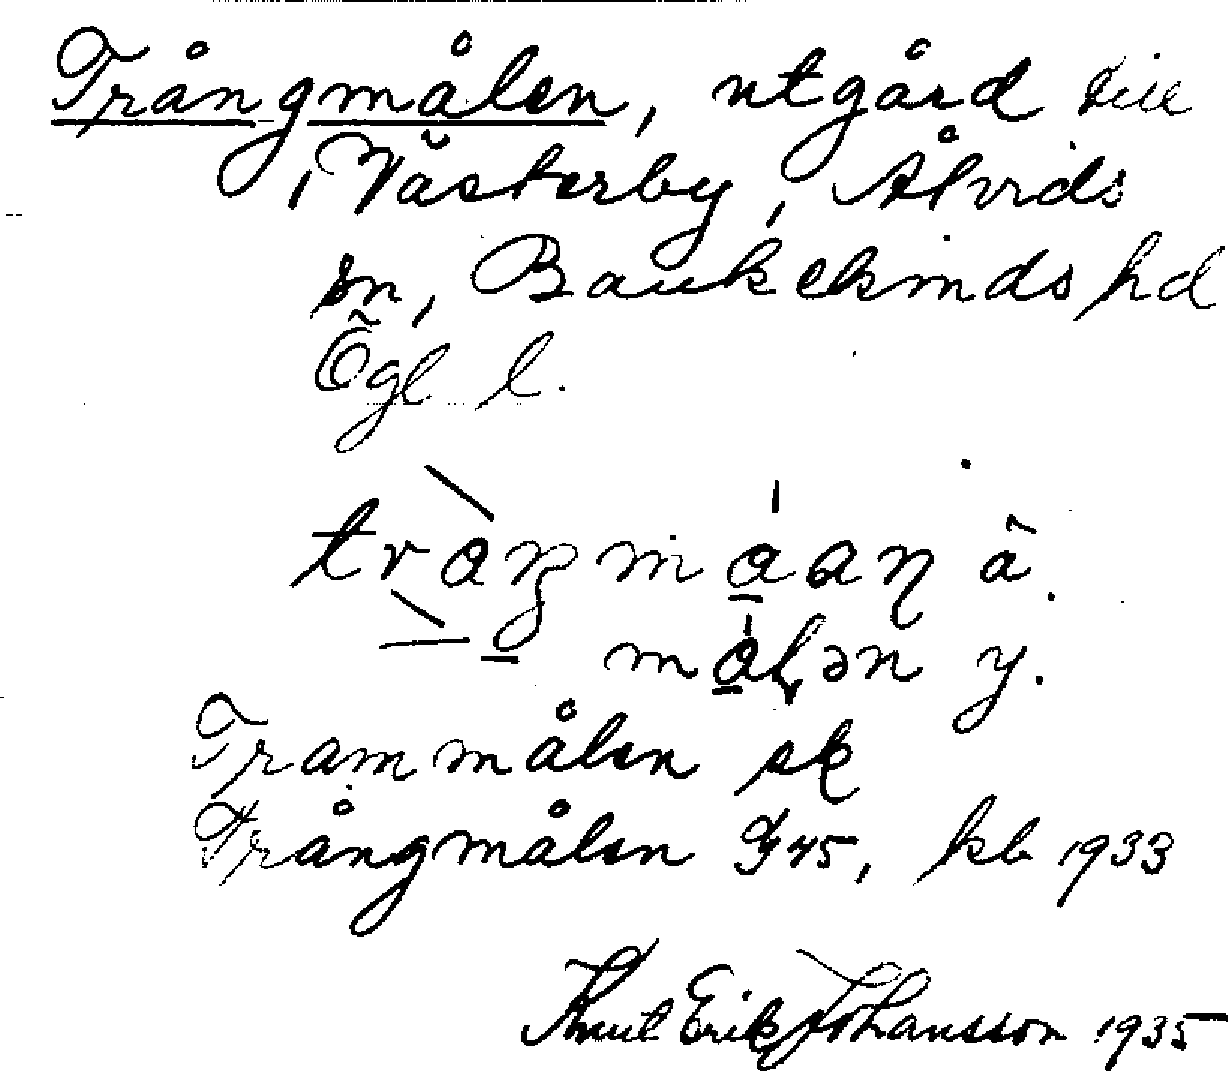 Trångmålen, utgård till
Västerby, Ålvids
sn, Bankekinds hd
Ögl l.
ä.
målən y.
Trammålen sk
Trångmålen J 45, kb 1933
Knut Erik Johansson 1935